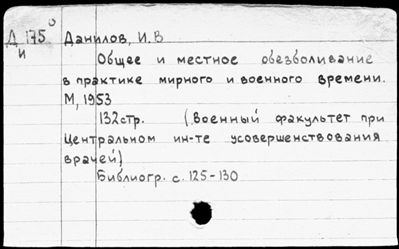 Д 175 Данилов, И.В
и
Общее и местное обезболивание
в практике мирного и военного времени.
М, 1953
132стр. (Военный факультет при
Центральном ин-те усовершенствования
врачей)
Библиогр. с. 125-130